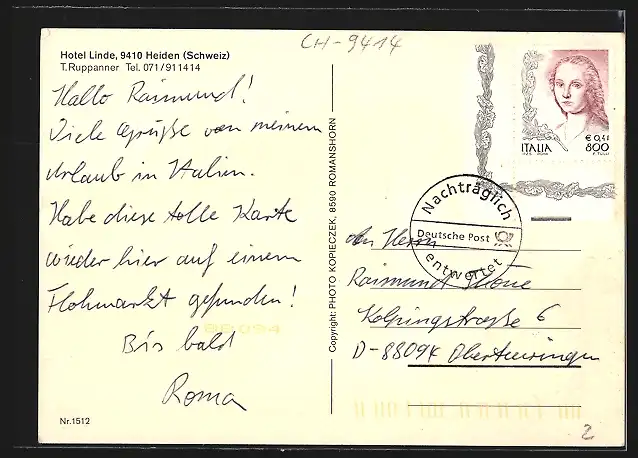 CH-9414
Hotel Linde, 9410 Heiden (Schweiz)
T. Ruppanner Tel. 071/911414
Hallo Raimund!
Viele Grüße von meinem
Urlaub in Italien.
Habe diese tolle Karte
wieder hier auf einem
Flohmarkt gefunden!
Bis bald
Roma
88094
Nr. 1512
Copyright: PHOTO KOPIECZEK, 8590 ROMANSHORN
ITALIA
€ 0,41
800
Nachträglich
Deutsche Post
entwertet
An Herrn
Raimund
Kolpingstraße 6
D-88094 Oberteuringen
2